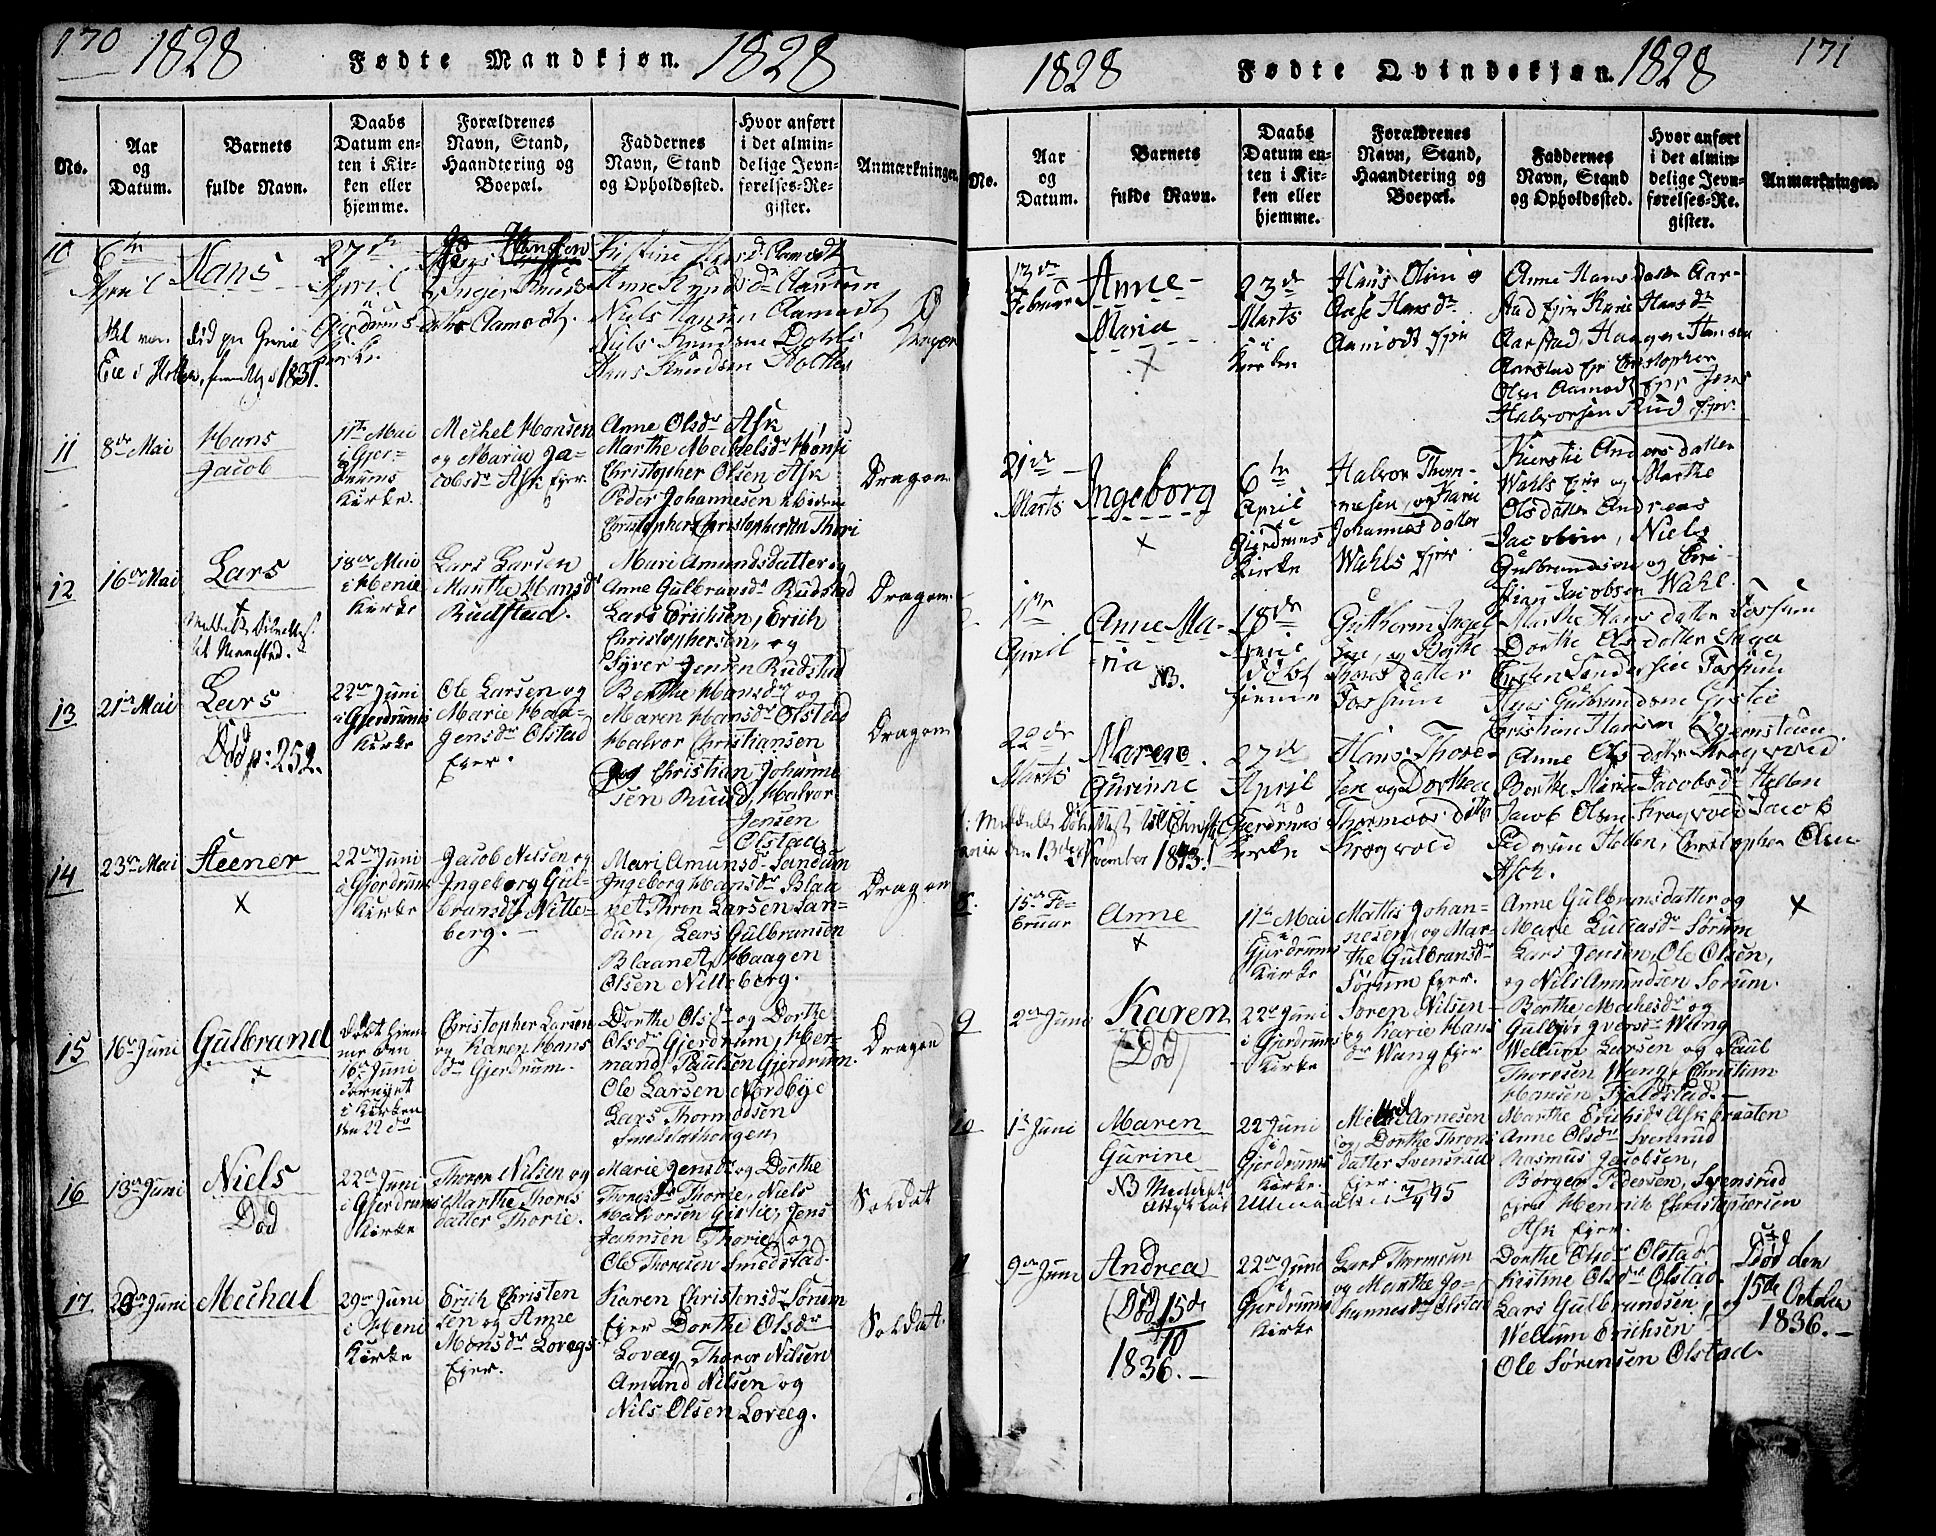 170 1828 Fødte Mandkjøn. 1828
No.
Aar
og
Datum.
Barnets
fulde Navn.
Daabs
Datum en-
ten i Kir-
ken eller
hjemme.
Forældrenes
Navn, Stand,
Haandtering og
Boepæl.
Faddernes
Navn, Stand
og Opholdssted.
Hvor anført
i det almin-
delige Jevn-
førelses-Re-
gister.
Anmærkninger.
10
6te
April
Hans
27de
April
i
Gjerdrums
Kirke
Inger Knuds
Datter Aamodt.
Kistine Larsd Aamodt
Anne Knudsdr
Niels Hansen Aamodt
Niels Knudsen Dahli
Hans Knudsen Holter
1837.
11
8de Mai
Hans
Jacob
11te Mai
i Gjer-
drums
Kirke.
Mechel Hansen
og Maria Ja-
cobsdr Ask Ejer.
Anne Olsdr Ask
Marthe Mechelsdr Hønsi
Christopher Olsen Ask
Peder Johannesen ibidem
Christopher Christophersen Thori
Dragon
12
16de Mai
Lars
til Nannestad.
18de Mai
i Henie
Kirke
Lars Larsen
Marthe Hansdr
Rudstad.
Mari Amundsdatter og
Anne Gulbransdr Rudstad
Lars Erichsen, Erich
Christophersen, og
Syver Jensen Rudstad
Dragon
13
21de Mai
Lars
Død p: 252.
22de Juni
i Gjerdrums
Kirke
Ole Larsen og
Marie Haa-
gensdr Olstad
Ejer.
Berthe Hansdr og
Maren Hansdr Olstad
Halvor Christiansen
og Christian Johanne
sen Ruud, Halvor
Jensen
Olstad
Dragon
14
23de Mai
Steener
x
22de Juni
i Gjerdrums
Kirke
Jacob Nilsen og
Ingeborg Gul-
bransdr Nitte-
berg.
Mari Amunsdr Sandum
Ingeborg Hansdr Blaa
net Thron Larsen San-
dum, Lars Gulbransen
Blaanet, Haagen
Olsen Nitteberg.
Dragon
15
16de Juni
Gulbrand
x
Døbt hjem
me den
16de Juni
i Kirken
den 22de
Christopher Larsen
og Karen Hans
dr Gjerdrum.
Dorthe Olsdr og Dorthe
Olsdr Gjerdrum, Her-
mand Paulsen Gjerdrum.
Ole Larsen Nordbye
Lars Thormodsen
Smedstadhougen
Dragon
16
13de Juni
Niels
Død
22de Juni
i Gjerdrums
Kirke
Thorer Nilsen og
Marthe Thores
datter Thorie.
Marie Jensdr og Dorthe
Thoresdr Thorie, Niels
Halvorsen Gistie, Jens
Jahnsen Thorie, og
Ole Thoresen Smedstad.
Soldat
17
23de Juni
Mechal
29de Juni
i Heni
Kirke
Erich Christen
sen og Anne
Monsdr Lovegs
Ejer.
Karen Christensdr Sørum
Ejer Dorthe Olsdr
Lovæg, Thorer Nilsen
Amund Nilsen og
Nils Olsen Loveeg.
Soldat
1828 Fødte Qvindekjøn. 1828 171
No.
Aar
og
Datum.
Barnets
fulde Navn.
Daabs
Datum en-
ten i Kir-
ken eller
hjemme.
Forældrenes
Navn, Stand,
Haandtering og
Boepæl.
Faddernes
Navn, Stand
og Opholdssted.
Hvor anført
i det almin-
delige Jevn-
førelses-Re-
gister.
Anmærkninger.
13de
Februar
Anne
Maria
x
23de
Marts
i
Kirken
Hans Olsen og
Aase Hansdr
Aamodt Ejer
Anne Hans datter Aar-
stad Ejer Karie Hansdr
Aarstad Haagen Hansen
Aarstad Ejer Christopher
Olsen Aamodt Ejer Jens
Halvorsen Rud Ejer.
21de
Marts
Ingeborg
x
6te
April
i
Gjerdrums
Kirke
Halvor Thom-
mesen, og Karie
Johannes datter
Wahls Ejer
Kiersti Anders datter
Wahls Ejer og Marthe
Olsdatter Andreas
Jacobsen, Niels
Gulbrandsen og Chri-
stian Jacobsen Wahl.
11te
April
Anne Ma-
ria
NB.
18de
April
døbt
hjemme
Gutherm Ingel
sen, og Berthe
Thores datter
Fossum
Marthe Hans datter Fossum
Dorthe Olsdatter
Gudersen Fossum
Hans Gulbrandsen Gistie
Cristian Hansen Qvernstuen.
22de
Marts
Maren
Gurinne
27de
April
i
Gjerdrums
Kirke
Hans Thore-
sen og Dorthea
Thormoos datter
Kragvold
Anne Ols datter Kragvold
Berthe Maria Jacobsdr Hellen
Jacob Olsen Kragvold Jacob
Pedersen Hellen, Christopher Olsen
Asch.
den 13de November 1843.
8.
15de Fe-
bruar
Anne
x
11te Mai
i
Gjerdrums
Kirke
Mattis Johan-
nesen, og Mar-
the Gulbransdr
Sørum Ejer.
Anne Gulbransdatter og
Marie Lucasdr Sørum
Lars Jensen, Ole Olsen,
og Nils Amundsen Sørum.
x
9
2de Juni
Karen
(Død)
22de Juni
i Gjerdrums
Kirke
Søren Nilsen
og Karie Hans
dr Wang Ejer
Berthe Mechelsdr og
Gulbjør Iversdr Wang
Wellum Larsen og Paul
Thoresen Wang, Christian
Hansen Fjeldstad.
10
1ste Juni
Maren
Gurine
NB Meddelt
Attest
22 Juni
i
Gjerdrums
Kirke.
Michel Arnesen
og Dorthe Throns
datter Svensrud
Ejer.
Marthe Erichsdr Askbraaten
Anne Olsdr Svensrud
Rasmus Jacobsen,
Børger Pedersen, Svensrud
Ejer Henrich Christophersen
Ask Ejer.
11
9de Juni
Andrea
(Død 15de/10
1836.
22de Juni
i
Gjerdrums
Kirke
Lars Thormsen
og Marthe Jo-
hannesdr Olstad
Dorthe Olsdr Olstad,
Kistine Olsdr Olstad.
Lars Gulbrandsen, og
Wellum Erichsen
Ole Sørensen Olstad.
Død den
15de October
1836.